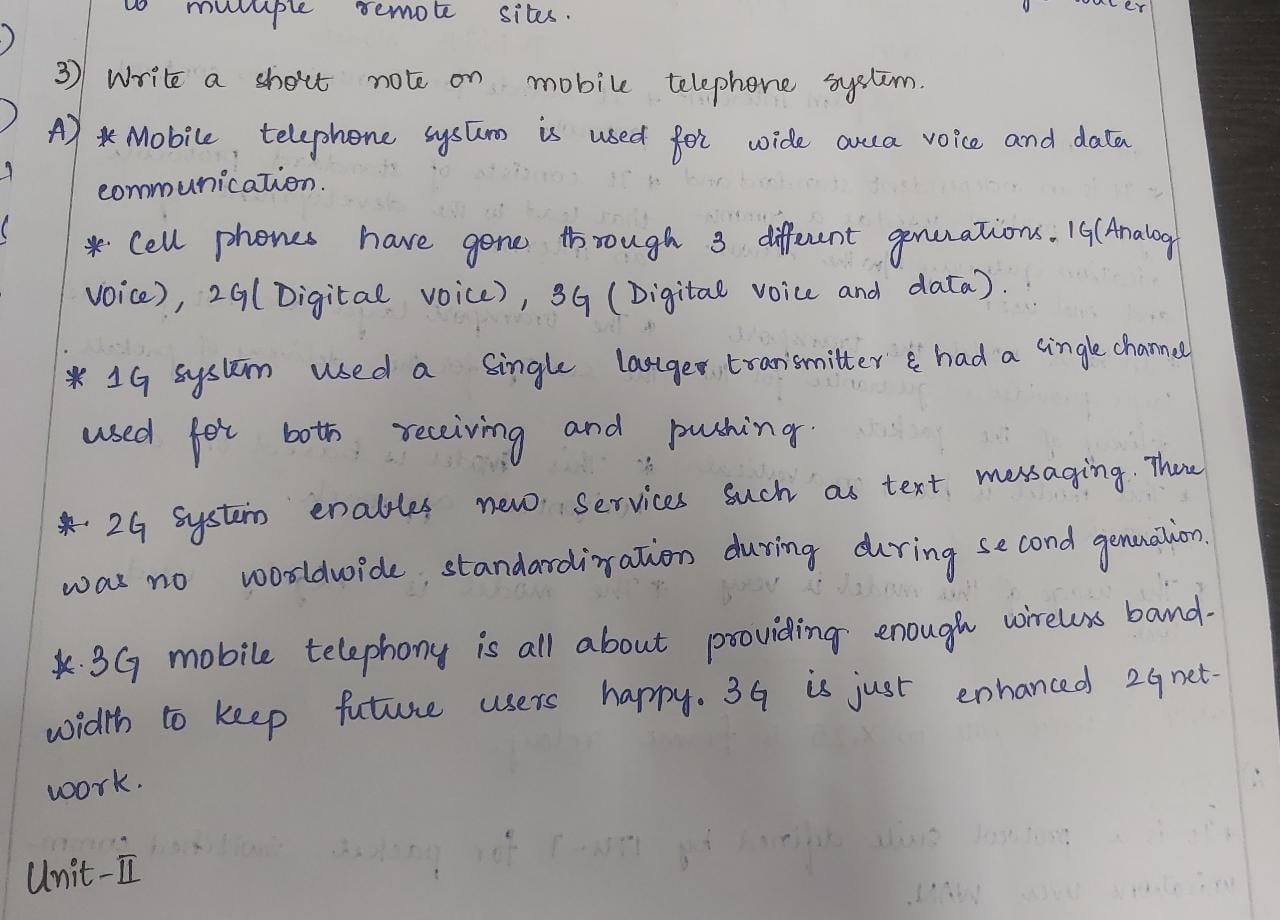 to multiple remote sites.
3) Write a short note on mobile telephone system.
A) * Mobile telephone system is used for wide area voice and data
communication.
* Cell phones have gone through 3 different generations. 1G(Analog
voice), 2G( Digital voice), 3G ( Digital voice and data).
* 1G system used a single larger transmitter & had a single channel
used for both receiving and pushing.
* 2G system enables new services such as text messaging. There
was no worldwide standardization during during second generation.
*. 3G mobile telephony is all about providing enough wireless band-
width to keep future users happy. 3G is just enhanced 2G net-
work.
Unit-II